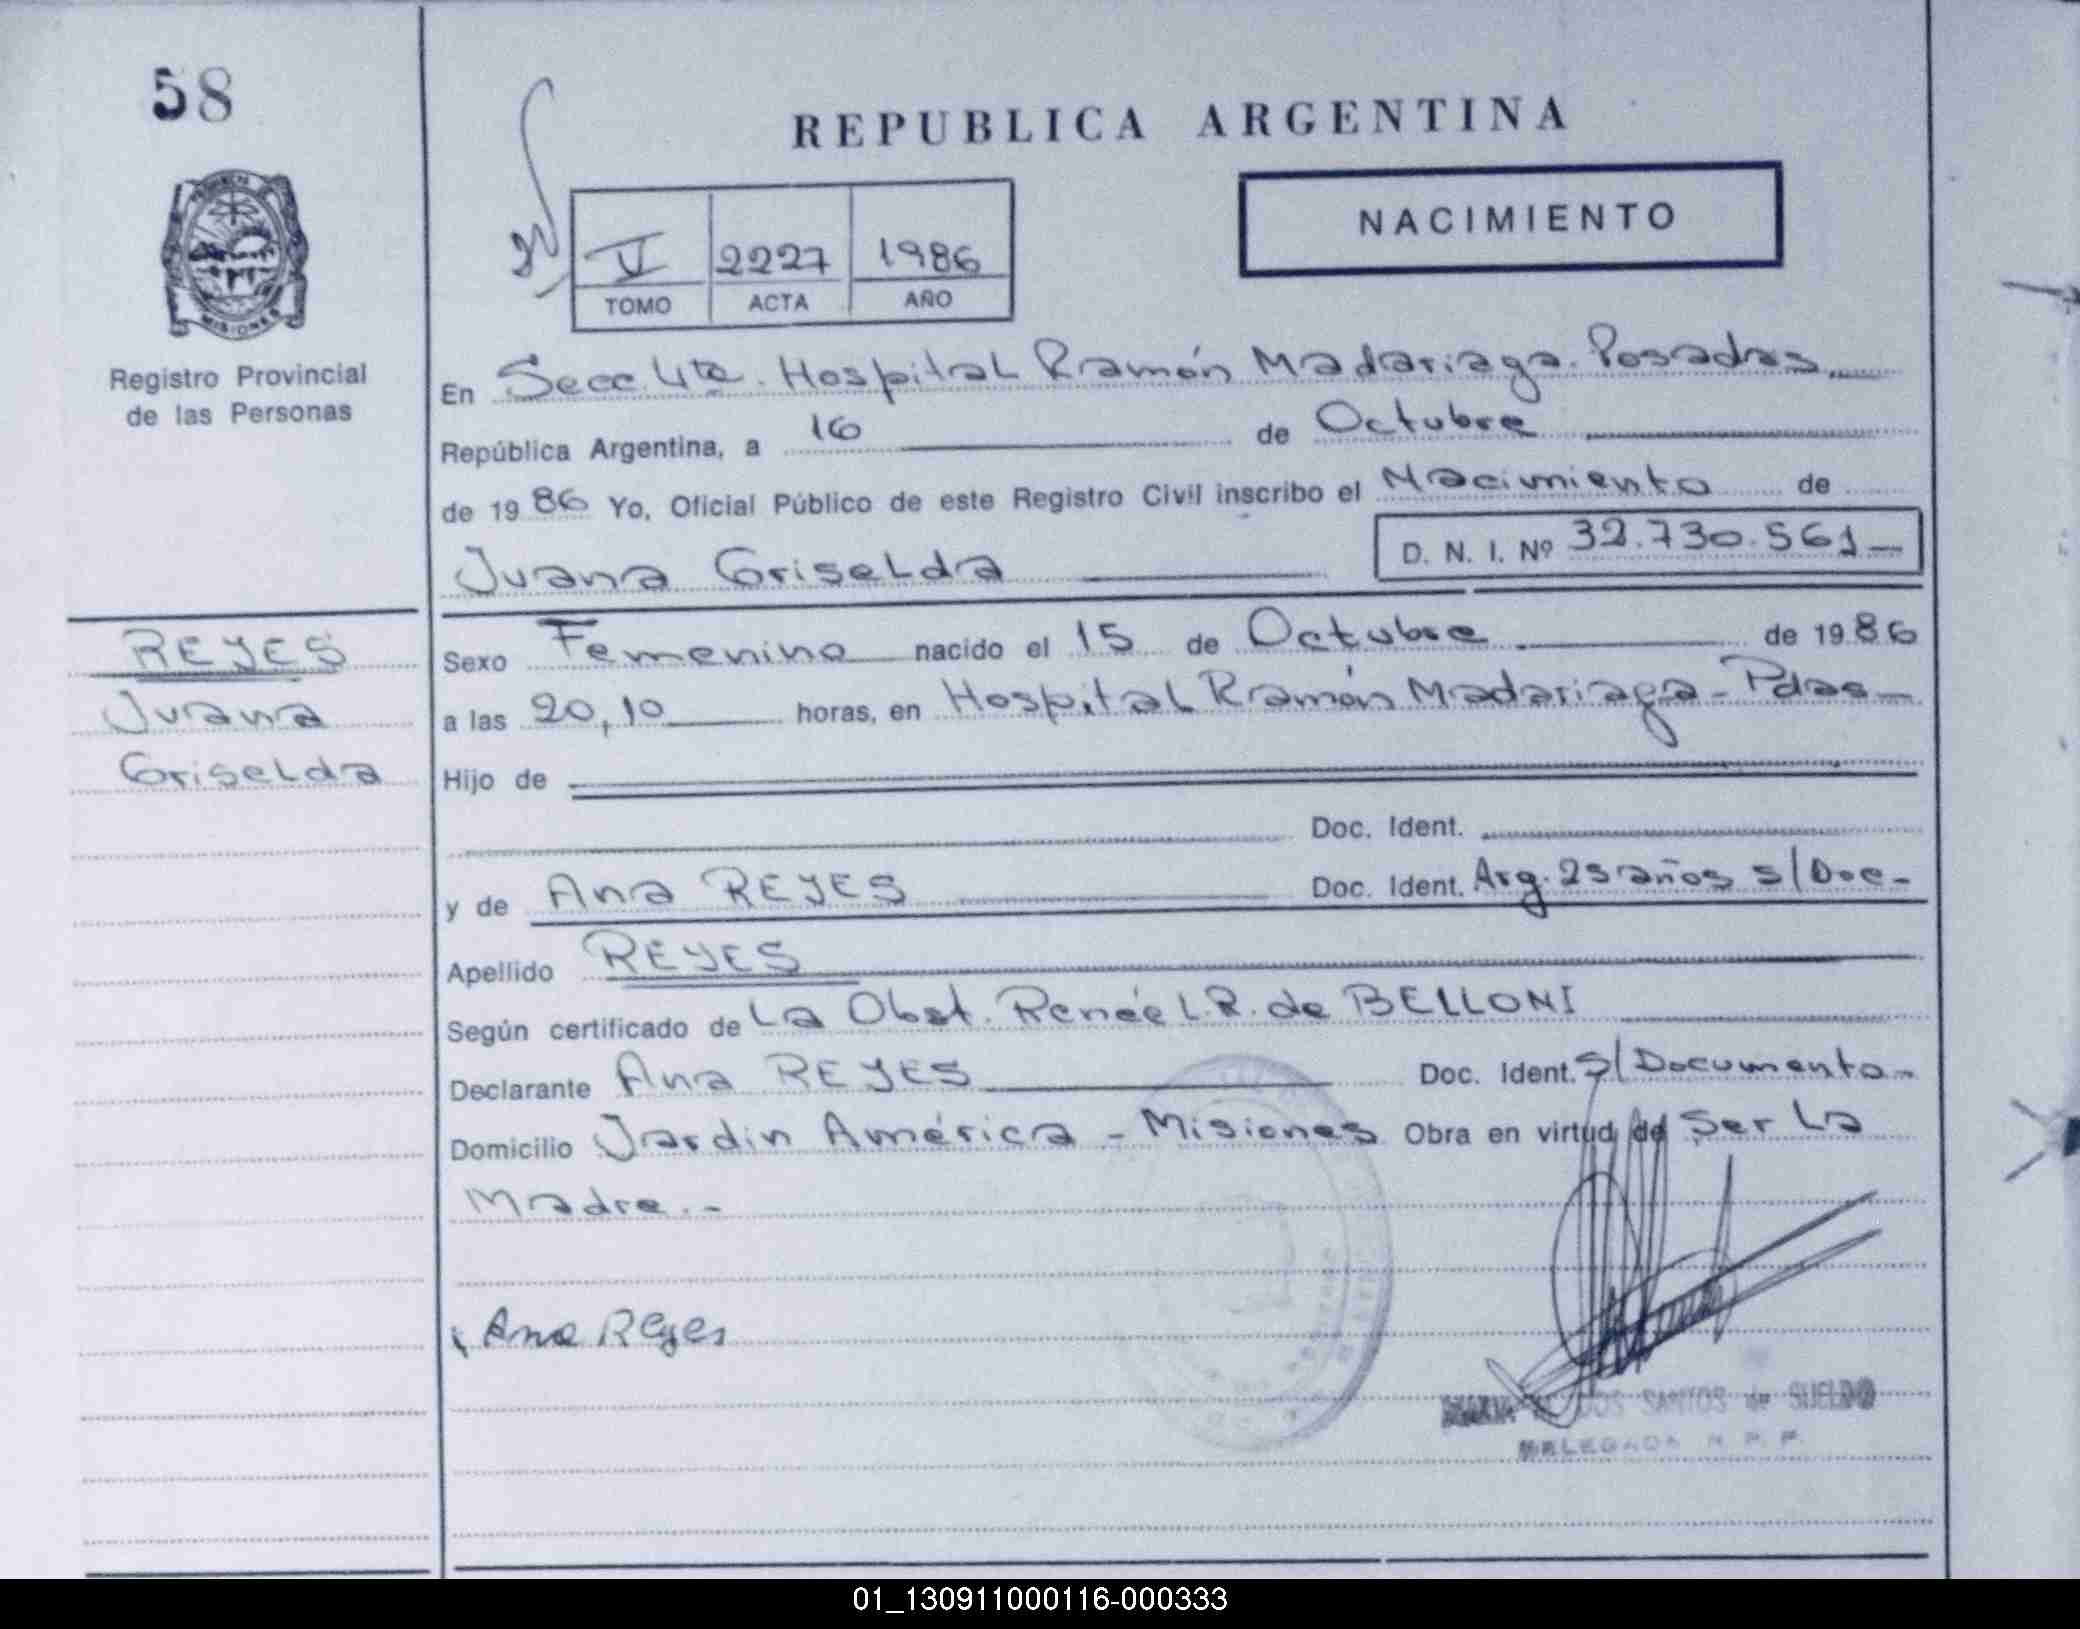 58
REPUBLICA ARGENTINA
NACIMIENTO
V 2227 1986
TOMO ACTA AÑO
MISIONES
Registro Provincial
de las Personas
En Secc. 4ta. Hospital Ramón Madariaga. Posadas.
República Argentina, a 16 de Octubre
de 1986 Yo, Oficial Público de este Registro Civil inscribo el Nacimiento de
Juana Griselda
D. N. I. Nº 32.730.561
REYES
Juana
Griselda
Sexo Femenino nacido el 15 de Octubre de 1986
a las 20,10 horas, en Hospital Ramón Madariaga - Pdas -
Hijo de
Doc. Ident.
y de Ana REYES Doc. Ident. Arg. 25 años s/Doc-
Apellido REYES
Según certificado de La Obst. Renée L.R. de BELLONI
Declarante Ana REYES Doc. Ident. S/Documento-
Domicilio Jardin América - Misiones Obra en virtud de Ser La
Madre.-
Ana Reyes
MARIA DOS SANTOS de SUELDO
DELEGADA R. P. P.
01_130911000116-000333